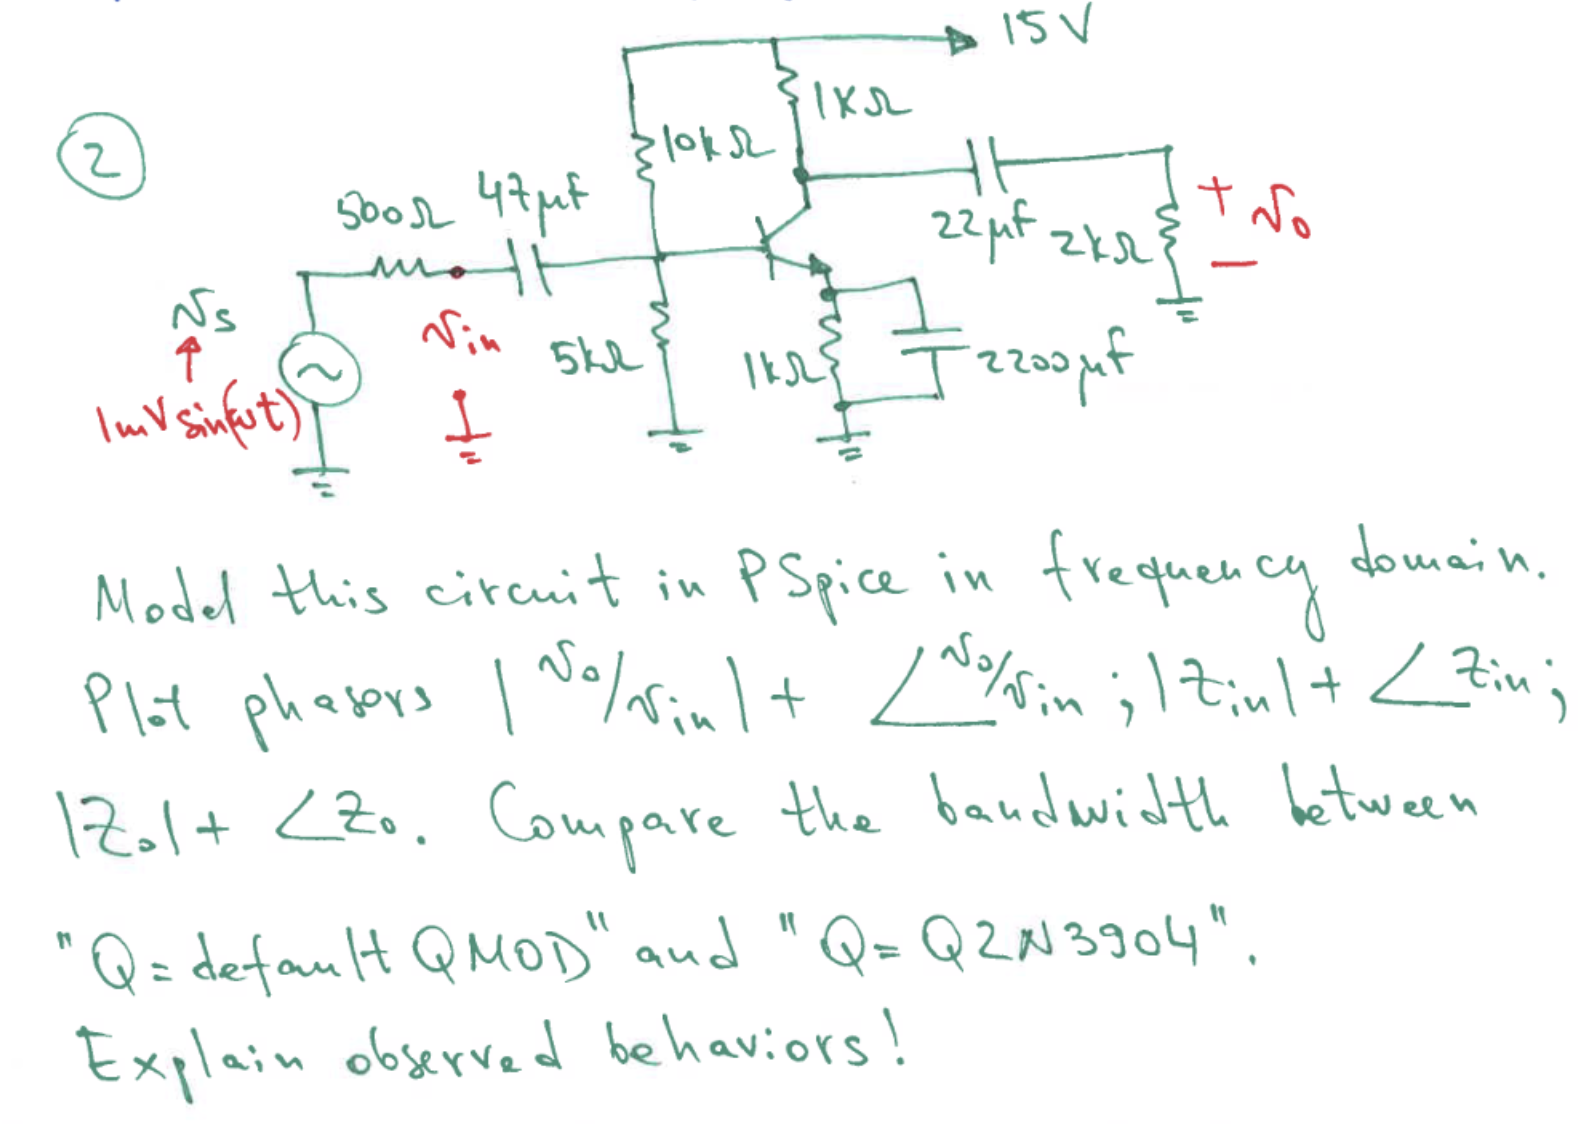 15V
1KΩ
2
10kΩ
500Ω 47μf
22μf 2kΩ
+ vo −
vs
vin
5kΩ
1kΩ
2200μf
1mV sin(ωt)
Model this circuit in PSpice in frequency domain.
Plot phasors |vo/vin| + ∠vo/vin ; |Zin| + ∠Zin ;
|Zo| + ∠Zo. Compare the bandwidth between
"Q=default QMOD" and "Q=Q2N3904".
Explain observed behaviors!